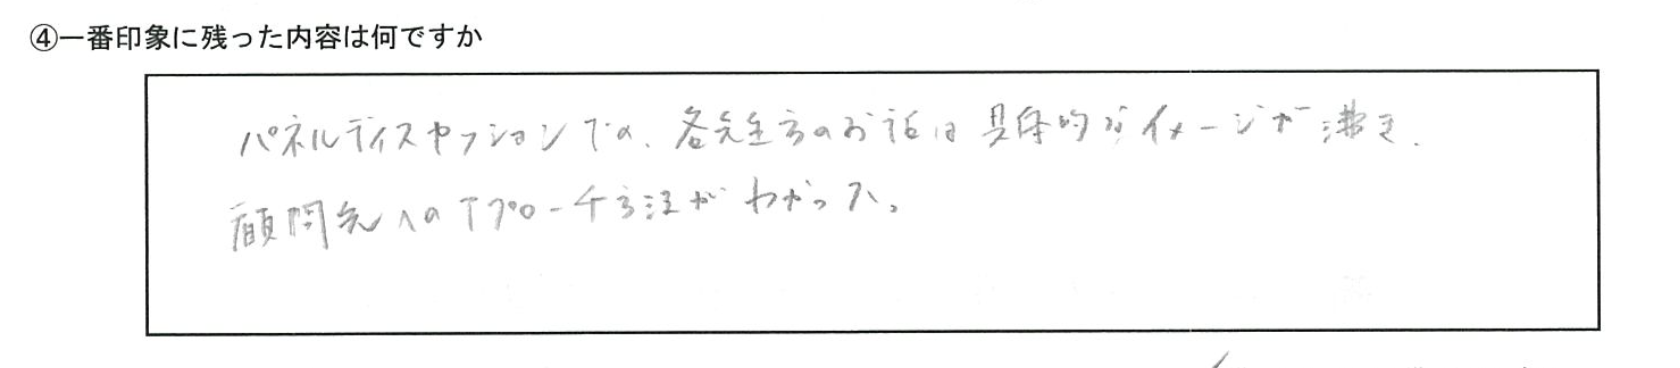 ④一番印象に残った内容は何ですか
パネルディスカッションでの、各先生方のお話は具体的なイメージが沸き、
顧問先へのアプローチ方法がわかった。